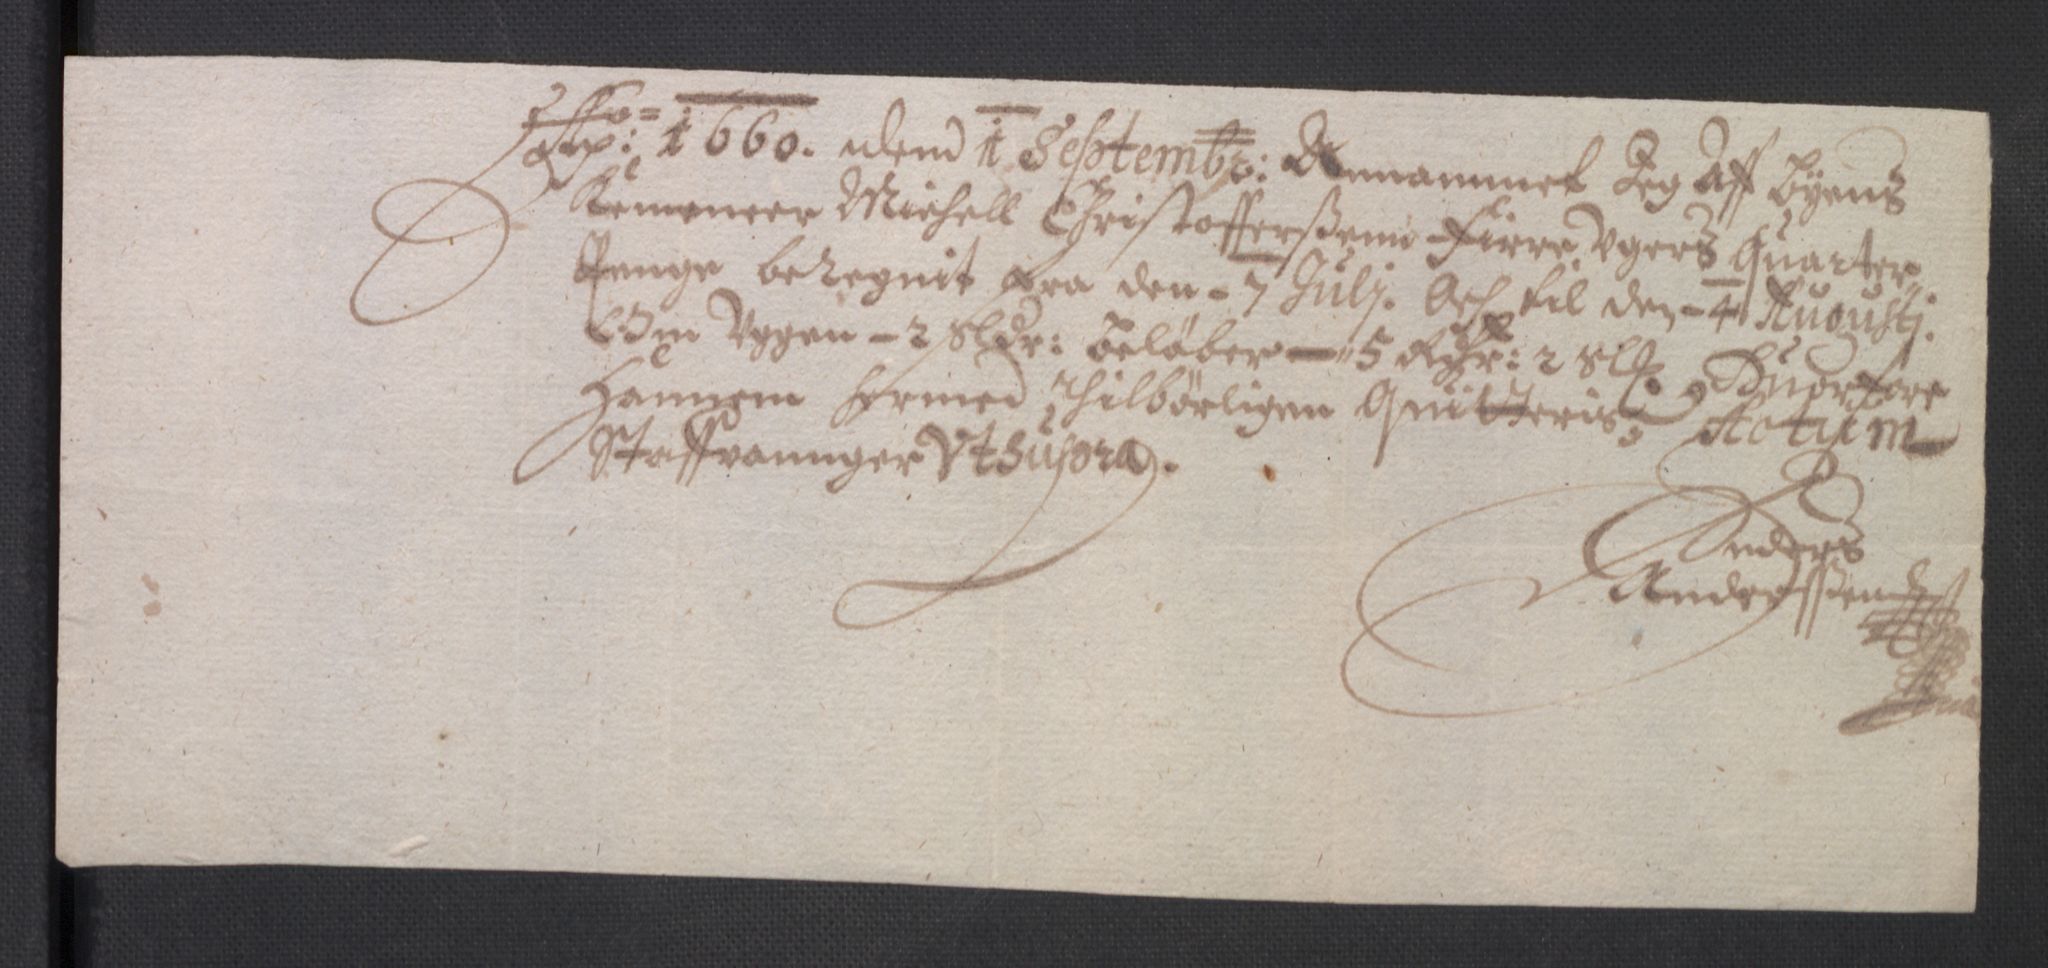 1660. dend 1 Septembr: Annammet Jeg Aff Byens
Kemener Michell Christofferßenn Firre Vgers Quarter
Penge beregnit fra den 7 Julj. Och til den 4 Augustj.
Om Vggen 2 Sldr: Beløber 5 Rdr: 2 Sld. Huorfore
Hannem hermed thilbørligen Quitteris: Actum
Staffuannger Vt Supra.
Anders
Anderßen